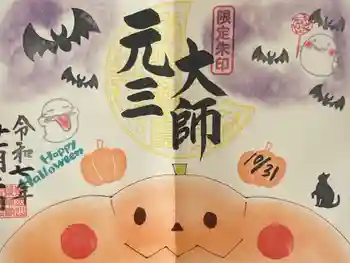 限定朱印
元三
大師
令和七年
Happy
Halloween
10/31